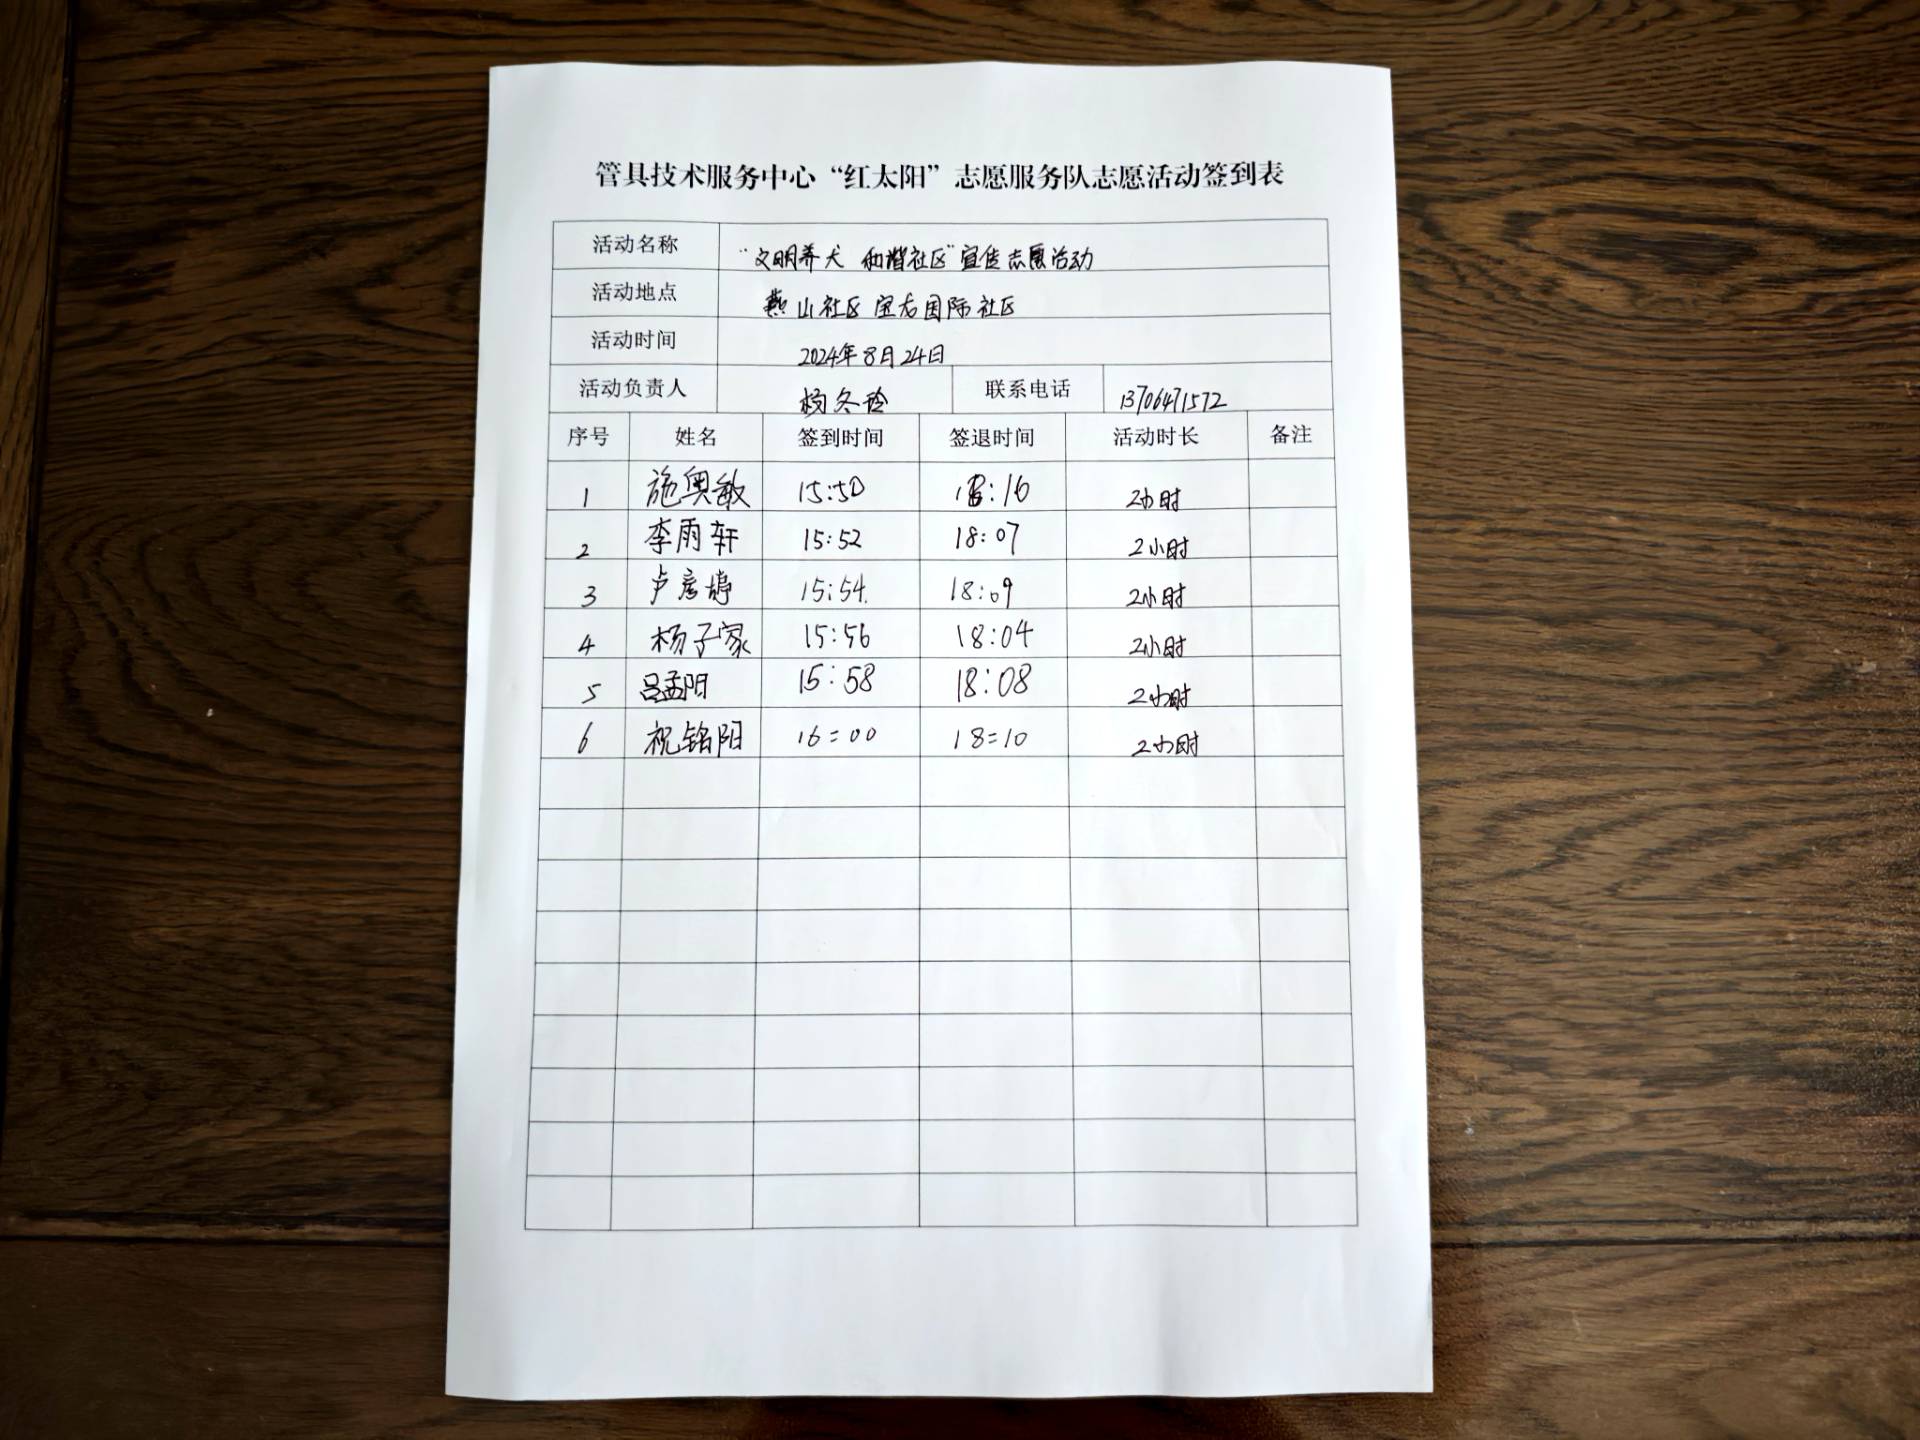 管具技术服务中心“红太阳”志愿服务队志愿活动签到表
活动名称 “文明养犬 和谐社区”宣传志愿活动
活动地点 燕山社区 宝龙国际社区
活动时间 2024年8月24日
活动负责人 杨冬玲 联系电话 13706471572
序号 姓名 签到时间 签退时间 活动时长 备注
1 施奥敏 15:50 18:16 2小时
2 李雨轩 15:52 18:07 2小时
3 卢彦婷 15:54 18:09 2小时
4 杨子家 15:56 18:04 2小时
5 吕孟阳 15:58 18:08 2小时
6 祝铭阳 16:00 18:10 2小时